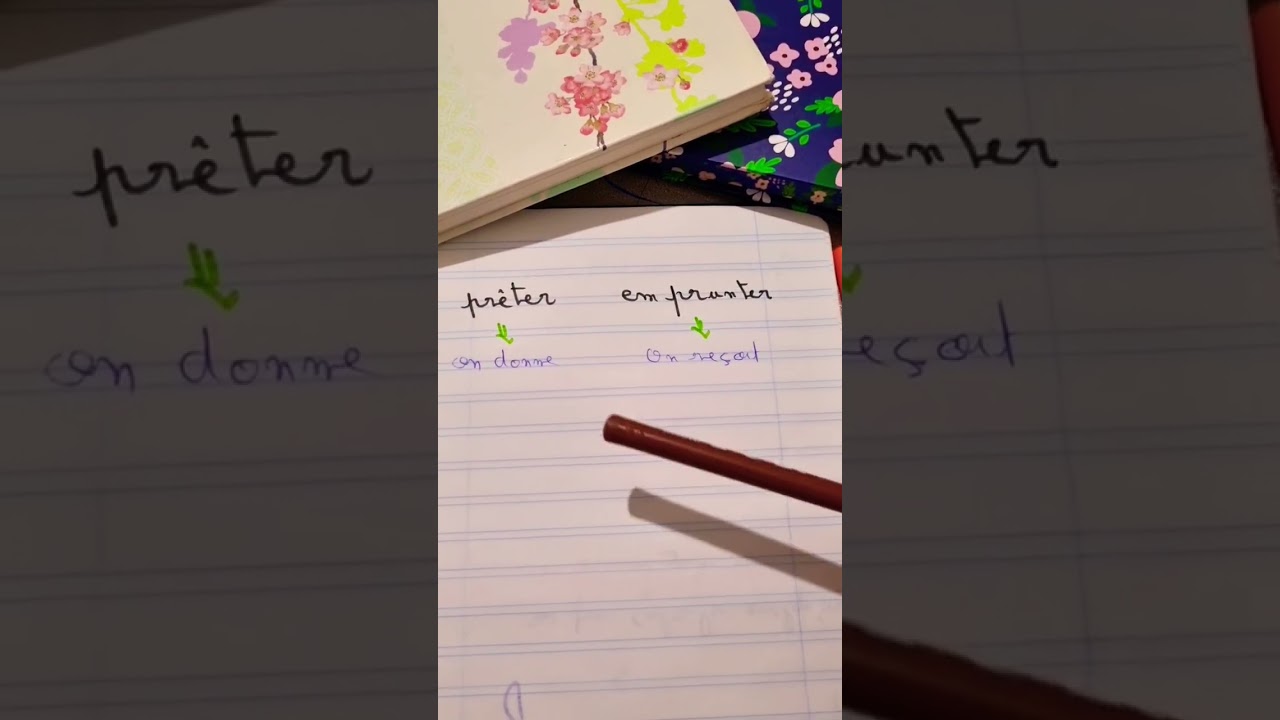 prêter emprunter
on donne on reçoit